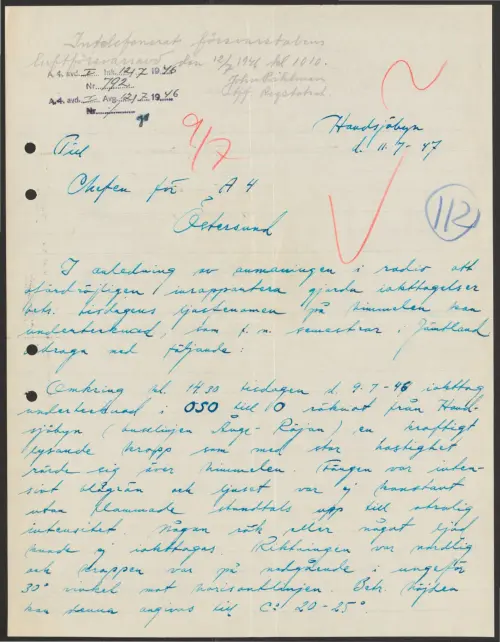 Intelefonerat försvarsstaben
luftförsvarsavd den 12/7 1946 kl 1010.
A.4. avd. I Ink. 12/7 1946
Nr. 792
A.4. avd. I Avg. 12/7 1946
Nr.
9/7
Handsjöbyn
d. 11-7-47
Till
Chefen för A 4
Östersund
112
I anledning av anmaningen i radio att
ofördröjligen inrapportera gjorda iakttagelser
betr. tisdagens ljusfenomen på himmelen kan
undertecknad, som f.n. semestrar i Jämtland
draga ned följande:
Omkring kl. 1430 tisdagen d. 9-7-46 iakttog
undertecknad i OSO till O räknat från Hand-
sjöbyn (busslinjen Ånge-Röjan) en kraftigt
lysande kropp som med stor hastighet
rörde sig över himmelen. Färgen var inten-
sivt blågrön och ljuset var ej konstant
utan flammade stundtals upp till otrolig
intensitet. Någon rök eller något ljud
kunde ej iakttagas. Riktningen var nordlig
och kroppen var på nedgående i ungefär
30° vinkel mot horisontlinjen. Betr. höjden
kan denna angivas till Ca 20-25°.